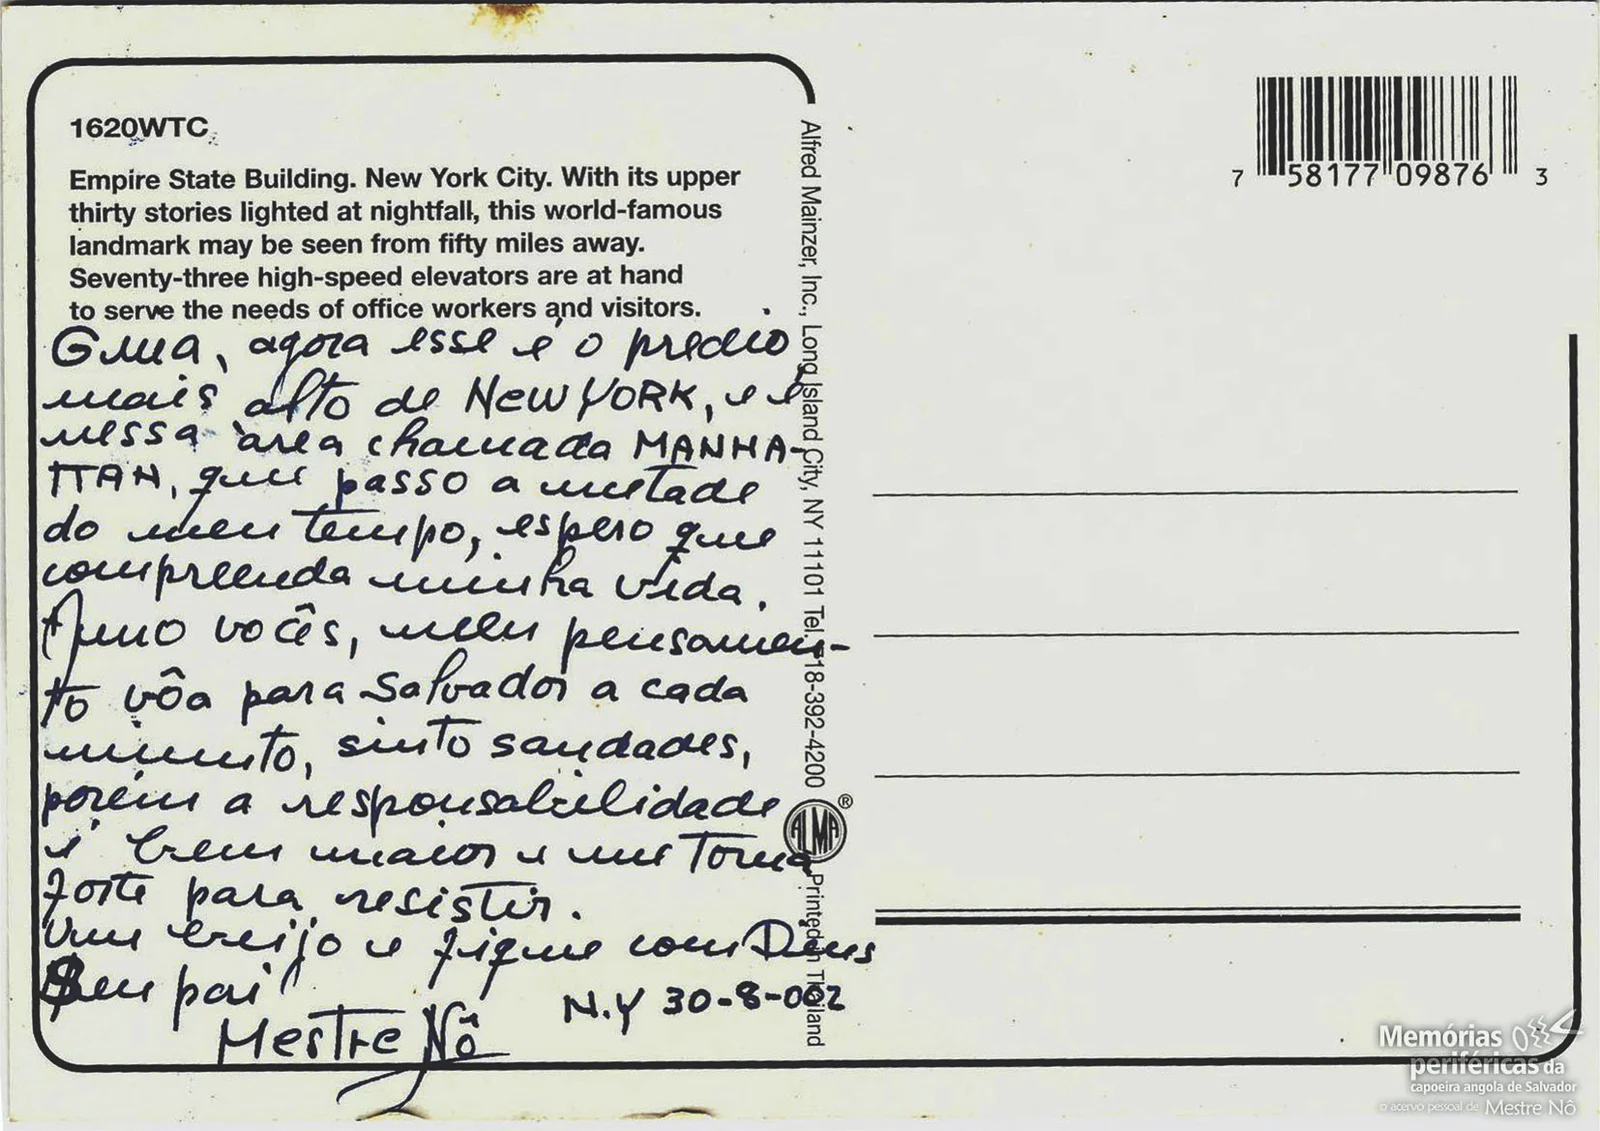 1620WTC
Empire State Building. New York City. With its upper
thirty stories lighted at nightfall, this world-famous
landmark may be seen from fifty miles away.
Seventy-three high-speed elevators are at hand
to serve the needs of office workers and visitors.
agora esse é o predio
mais alto de NEW YORK, e é
nessa área chamada MANHA-
TTAN, que passo a metade
do meu tempo, espero que
compreenda minha vida.
Amo vocês, meu pensamen-
to vôa para Salvador a cada
minuto, sinto saudades,
porém a responsabilidade
é bem maior e me torna
forte para resistir.
Um beijo e fique com Deus
Seu pai
N.Y 30-8-002
Mestre Nô
Alfred Mainzer, Inc., Long Island City, NY 11101 Tel. 718-392-4200
ALMA ®
Printed in Thailand
7 58177 09876 3
Memórias
periféricas da
capoeira angola de Salvador
o acervo pessoal de Mestre Nô